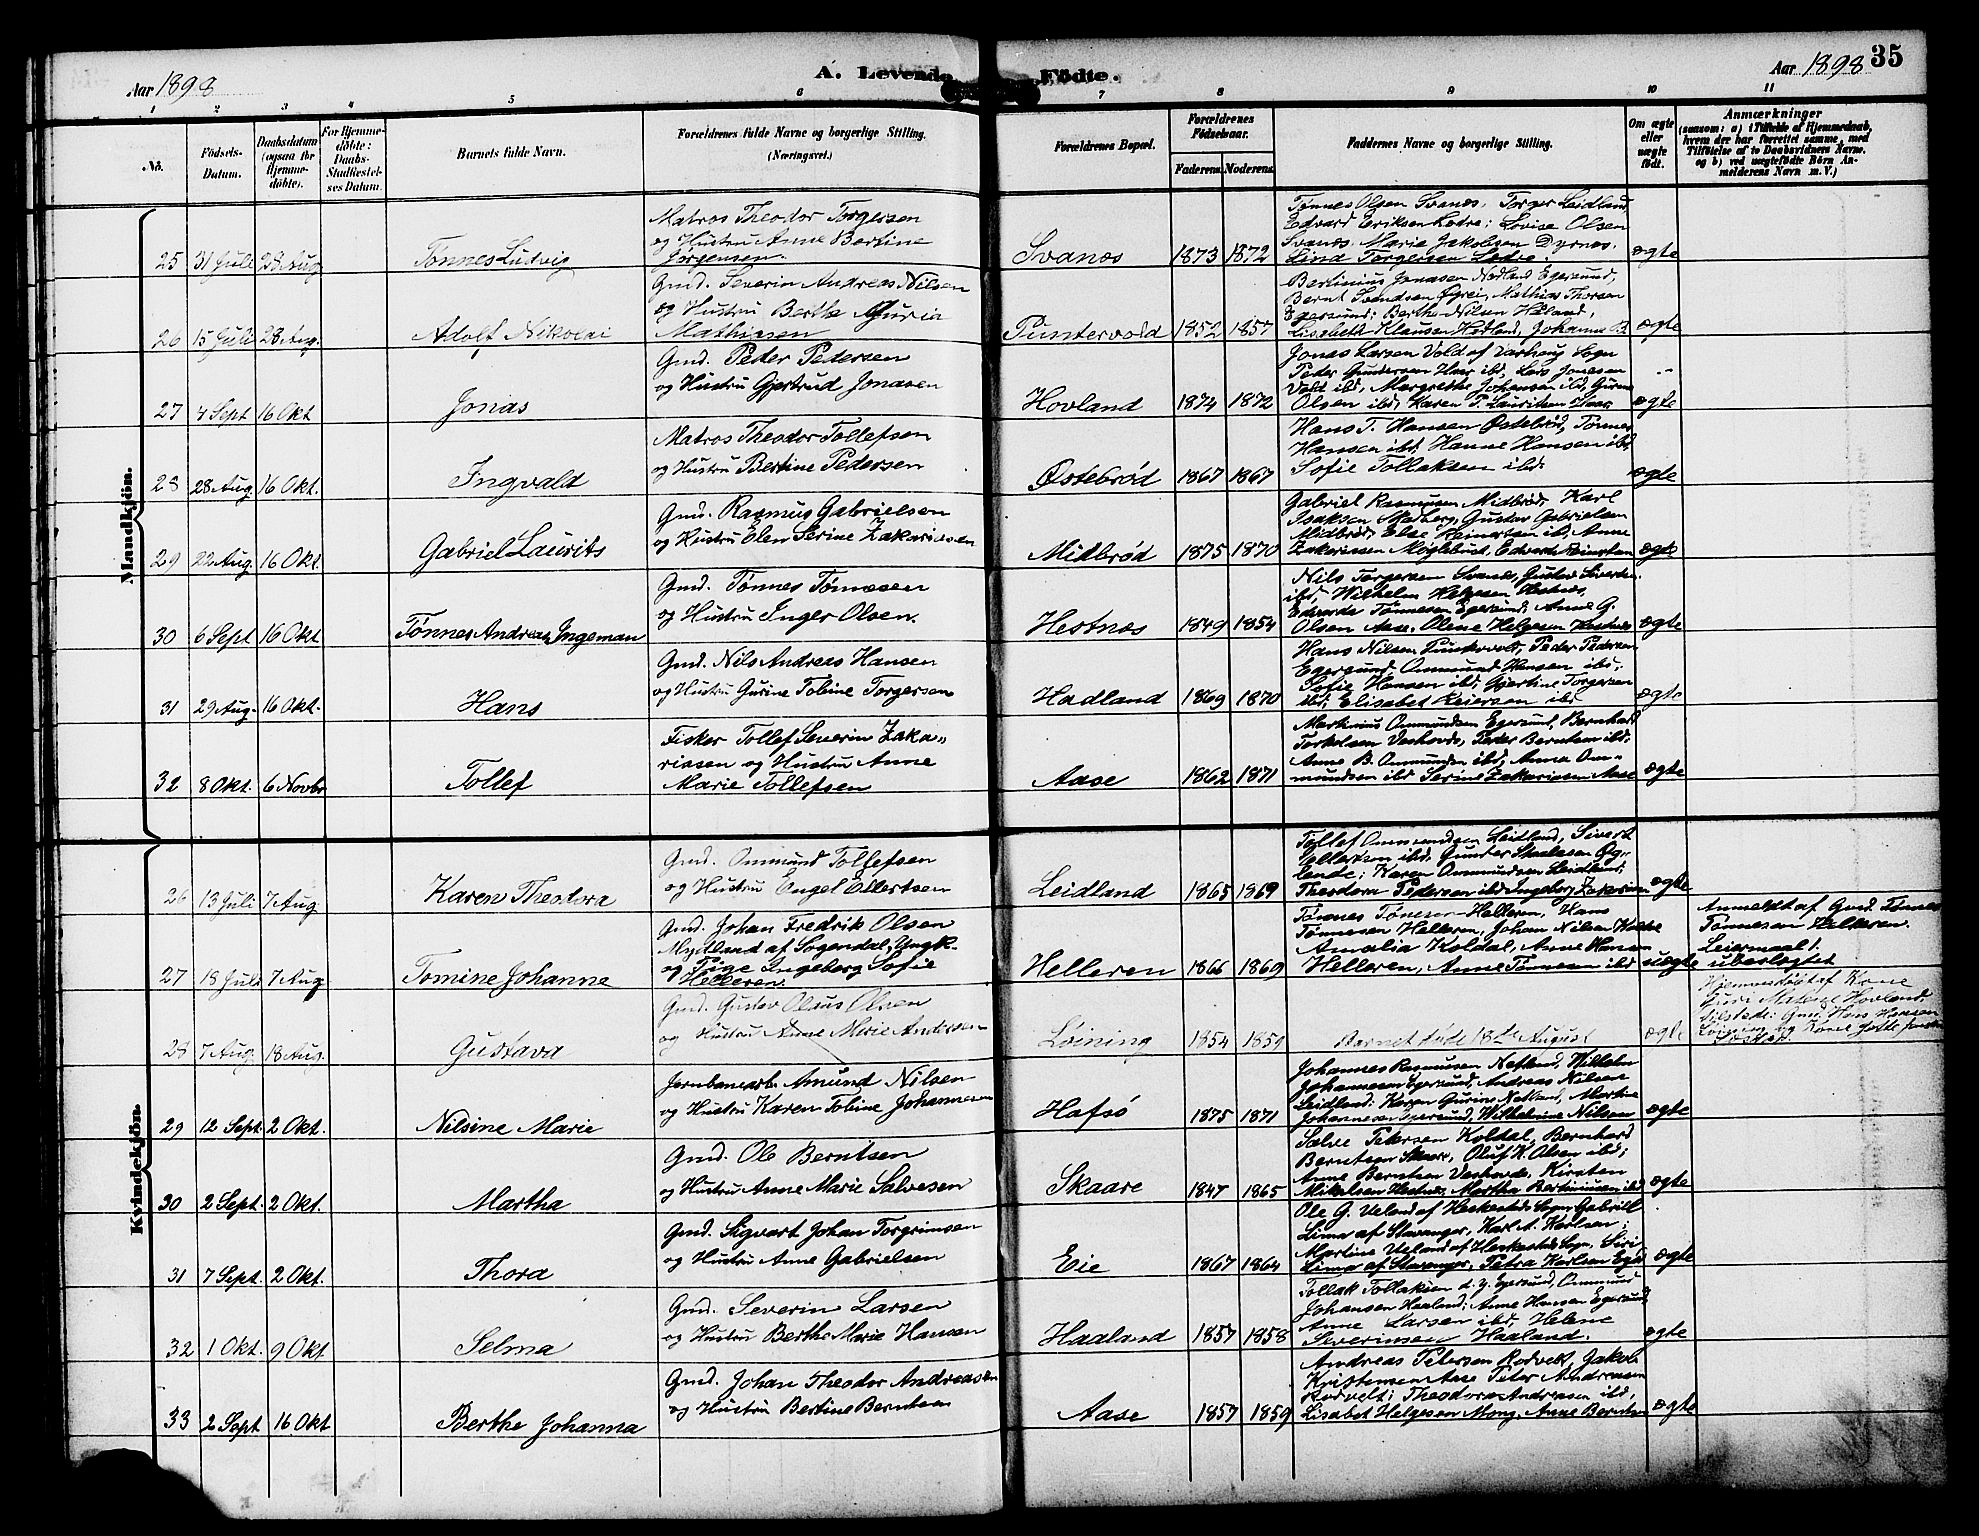 Aar 1898
A. Levende Födte.
Aar 1898
35
1 2 3 4 5 6 7 8 9 10 11
No.
Födsels-Datum.
Daabsdatum (ogsaa for Hjemme-döbte).
For Hjemme-döbte: Daabs-Stadfæstel-ses Datum.
Barnets fulde Navn.
Forældrenes fulde Navne og borgerlige Stilling. (Næringsvei.)
Forældrenes Bopæl.
Forældrenes Födselsaar.
Faderens. Moderens.
Faddernes Navne og borgerlige Stilling.
Om ægte eller uægte födt.
Anmærkninger
(saasom: a) i Tilfælde af Hjemmedaab, hvem der har forrettet samme, med Tilföielse af to Daabsvidners Navne, og b) ved uægtefödte Börn An-melderens Navn m. V.)
Mandkjön.
25 31 Juli 28 Aug Tønnes Ludvig
Matros Theodor Torgersen
og Hustru Anne Bertine
Jørgensen.
Svanæs 1873 1872
Tønnes Olsen Svanæs, Torger Leidland,
Edvard Eriksen Ledre; Lovise Olsen
Svanæs, Marie Jakobsen Dyrnes,
Lina Torgersen Ledre.
ægte
26 15 Juli 28 Aug. Adolf Nikolai
Gmd. Severin Andreas Nilsen
og Hustru Berthe Guria
Mathiasen
Puntervold 1852 1857
Bertinius Jonassen Nodland Egersund,
Bernt Svendsen Øgrei, Mathias Thorsen
Egersund; Berthe Nilsen Haland,
Lisabeth Klausen Hadland, Johanne B.
ægte
27 4 Sept 16 Okt Jonas
Gmd. Peder Pedersen
og Hustru Gjertrud Jonasen
Hovland 1874 1872
Jonas Larsen Vold af Varhaug Sogn
Peder Gundersen Haar ibd, Lars Jonesen
Vold ibd, Margrethe Johansen ibd, Gurine
Olsen ibd, Karen P. Lauritsen Haar
ægte
28 28 Aug. 16 Okt. Ingvald
Matros Theodor Tollefsen
og Hustru Bertine Pedersen
Østebrød 1867 1867
Hans T. Hansen Østebrød, Tønnes
Hansen ibd, Hanne Hansen ibd,
Sofie Tollaksen ibd.
ægte
29 22 Aug. 16 Okt. Gabriel Laurits
Gmd. Rasmus Gabrielsen
og Hustru Elen Serine Zakariasen
Midbrød 1875 1870
Gabriel Rasmusen Midbrød, Karl
Isaksen Maberg, Gustav Gabrielsen
Midbrød, Else Reinertsen ibd, Anne
Zakariasen Møglebust, Edvarda Reinertsen
ægte
30 6 Sept 16 Okt Tønnes Andreas Ingeman
Gmd. Tønnes Tønnesen
og Hustru Inger Olsen.
Hestnæs 1849 1854
Nils Torgersen Svanæs, Gustav Sivertsen
ibd, Wilhelm Helgesen Hestnæs,
Edvarda Tønnesen Egersund, Anne G.
Olsen Aase, Olene Helgesen Hestnæs
ægte
31 29 Aug. 16 Okt. Hans
Gmd. Nils Andreas Hansen
og Hustru Gurine Tobine Torgersen
Hadland 1869 1870
Hans Nilsen Puntervolt, Peder Pedersen
Egersund, Ommund Hansen ibd.
Sofie Hansen ibd; Gjertine Torgersen
ibd; Elisabet Reiersen ibd
ægte
32 8 Okt. 6 Novbr Tollef
Fisker Tollef Severin Zaka„
riasen og Hustru Anne
Marie Tollefsen
Aase 1862 1871
Martinius Ommundsen Egersund, Bernhard
Torkelsen Veshovde, Peder Berntsen ibd;
Anne B. Ommundsen ibd, Anna Om-
mundsen ibd Serine Zakariasen Aase
ægte
Kvindekjön.
26 13 Juli 7 Aug Karen Theodora
Gmd. Ommund Tollefsen
og Hustru Engel Ellertsen
Leidland 1865 1869
Tollef Ommundsen Leidland, Sivert
Ellertsen ibd, Gunder Skadesen Øg„
lende; Karen Ommundsen Leidland;
Theodora Pedersen ibd Ingeborg Zakariasen
ægte
27 18 Juli 7 Aug Tomine Johanne
Gmd. Johan Fredrik Olsen
Mydland af Sogendal, Ungk.
og Pige Ingeborg Sofie
Helleren.
Helleren 1866 1869
Tønnes Tønesen Helleren, Hans
Tønnesen Helleren, Johan Nilsen Koldal
Amalia Koldal, Anne Hansen
Helleren, Anne Tønnesen ibd
uægte
Anmeldt af Gmd. Tønnes
Tønnesen Helleren.
Leiermaal 1.
ubeslægtet
28 7 Aug. 18 Aug. Gustava
Gmd. Gustav Olaus Olsen
og Hustru Anne Marie Andersen
Løining 1854 1859
Barnet døde 18de August
ægte
Hjemmedøbt af Kone
Guri Malene Hovland.
Tilstede: Gmd. Hans Hansen
Løining og Kone
29 12 Sept. 2 Okt. Nilsine Marie
Jernbanearb. Amund Nilsen
og Hustru Karen Tobine Johannesen
Hafsø 1875 1871
Johannes Rasmusen Netland, Wilhelm
Johannesen Egersund, Andreas Nilsen
Leidland; Karen Gurine Netland, Martine
Johannesen Egersund, Wilhelmine Nilsen
ægte
30 2 Sept. 2 Okt. Martha
Gmd. Ole Berntsen
og Hustru Anne Marie Salvesen
Skaare 1847 1865
Salve Petersen Koldal, Bernhard
Berntsen Skaare, Oluf K. Olsen ibd;
Anne Berntsen Veshovde, Kirsten
Mikalsen Hestnæs, Martha Bertinusen ibd
ægte
31 7 Sept. 2 Okt. Thora
Gmd. Sigvart Johan Torgrimsen
og Hustru Anne Gabrielsen
Eie 1867 1864
Ole G. Ueland af Heskestads Sogn Gabriel
Lima af Stavanger, Karl A. Karlsen;
Martine Ueland af Heskestads Sogn, Siri
Lima af Stavanger, Petra Karlsen Egsd
ægte
32 1 Okt. 9 Okt Selma
Gmd. Severin Larsen
og Hustru Berthe Marie Hansen
Haaland 1857 1858
Tollak Tollaksen d. y. Egersund, Ommund
Johansen Haaland; Anne Hansen Egersund,
Anne Larsen ibd, Helene
Severinsen Haaland.
ægte
33 2 Sept 16 Okt Berthe Johanna
Gmd. Johan Theodor Andreasen
og Hustru Bertine Berntsen
Aase 1857 1859
Andreas Petersen Rodvelt, Jakob
Kristensen Aase Peter Andreasen
Rodvelt; Theodora Andreasen ibd,
Lisabet Helgesen Mong, Anne Berntsen
ægte